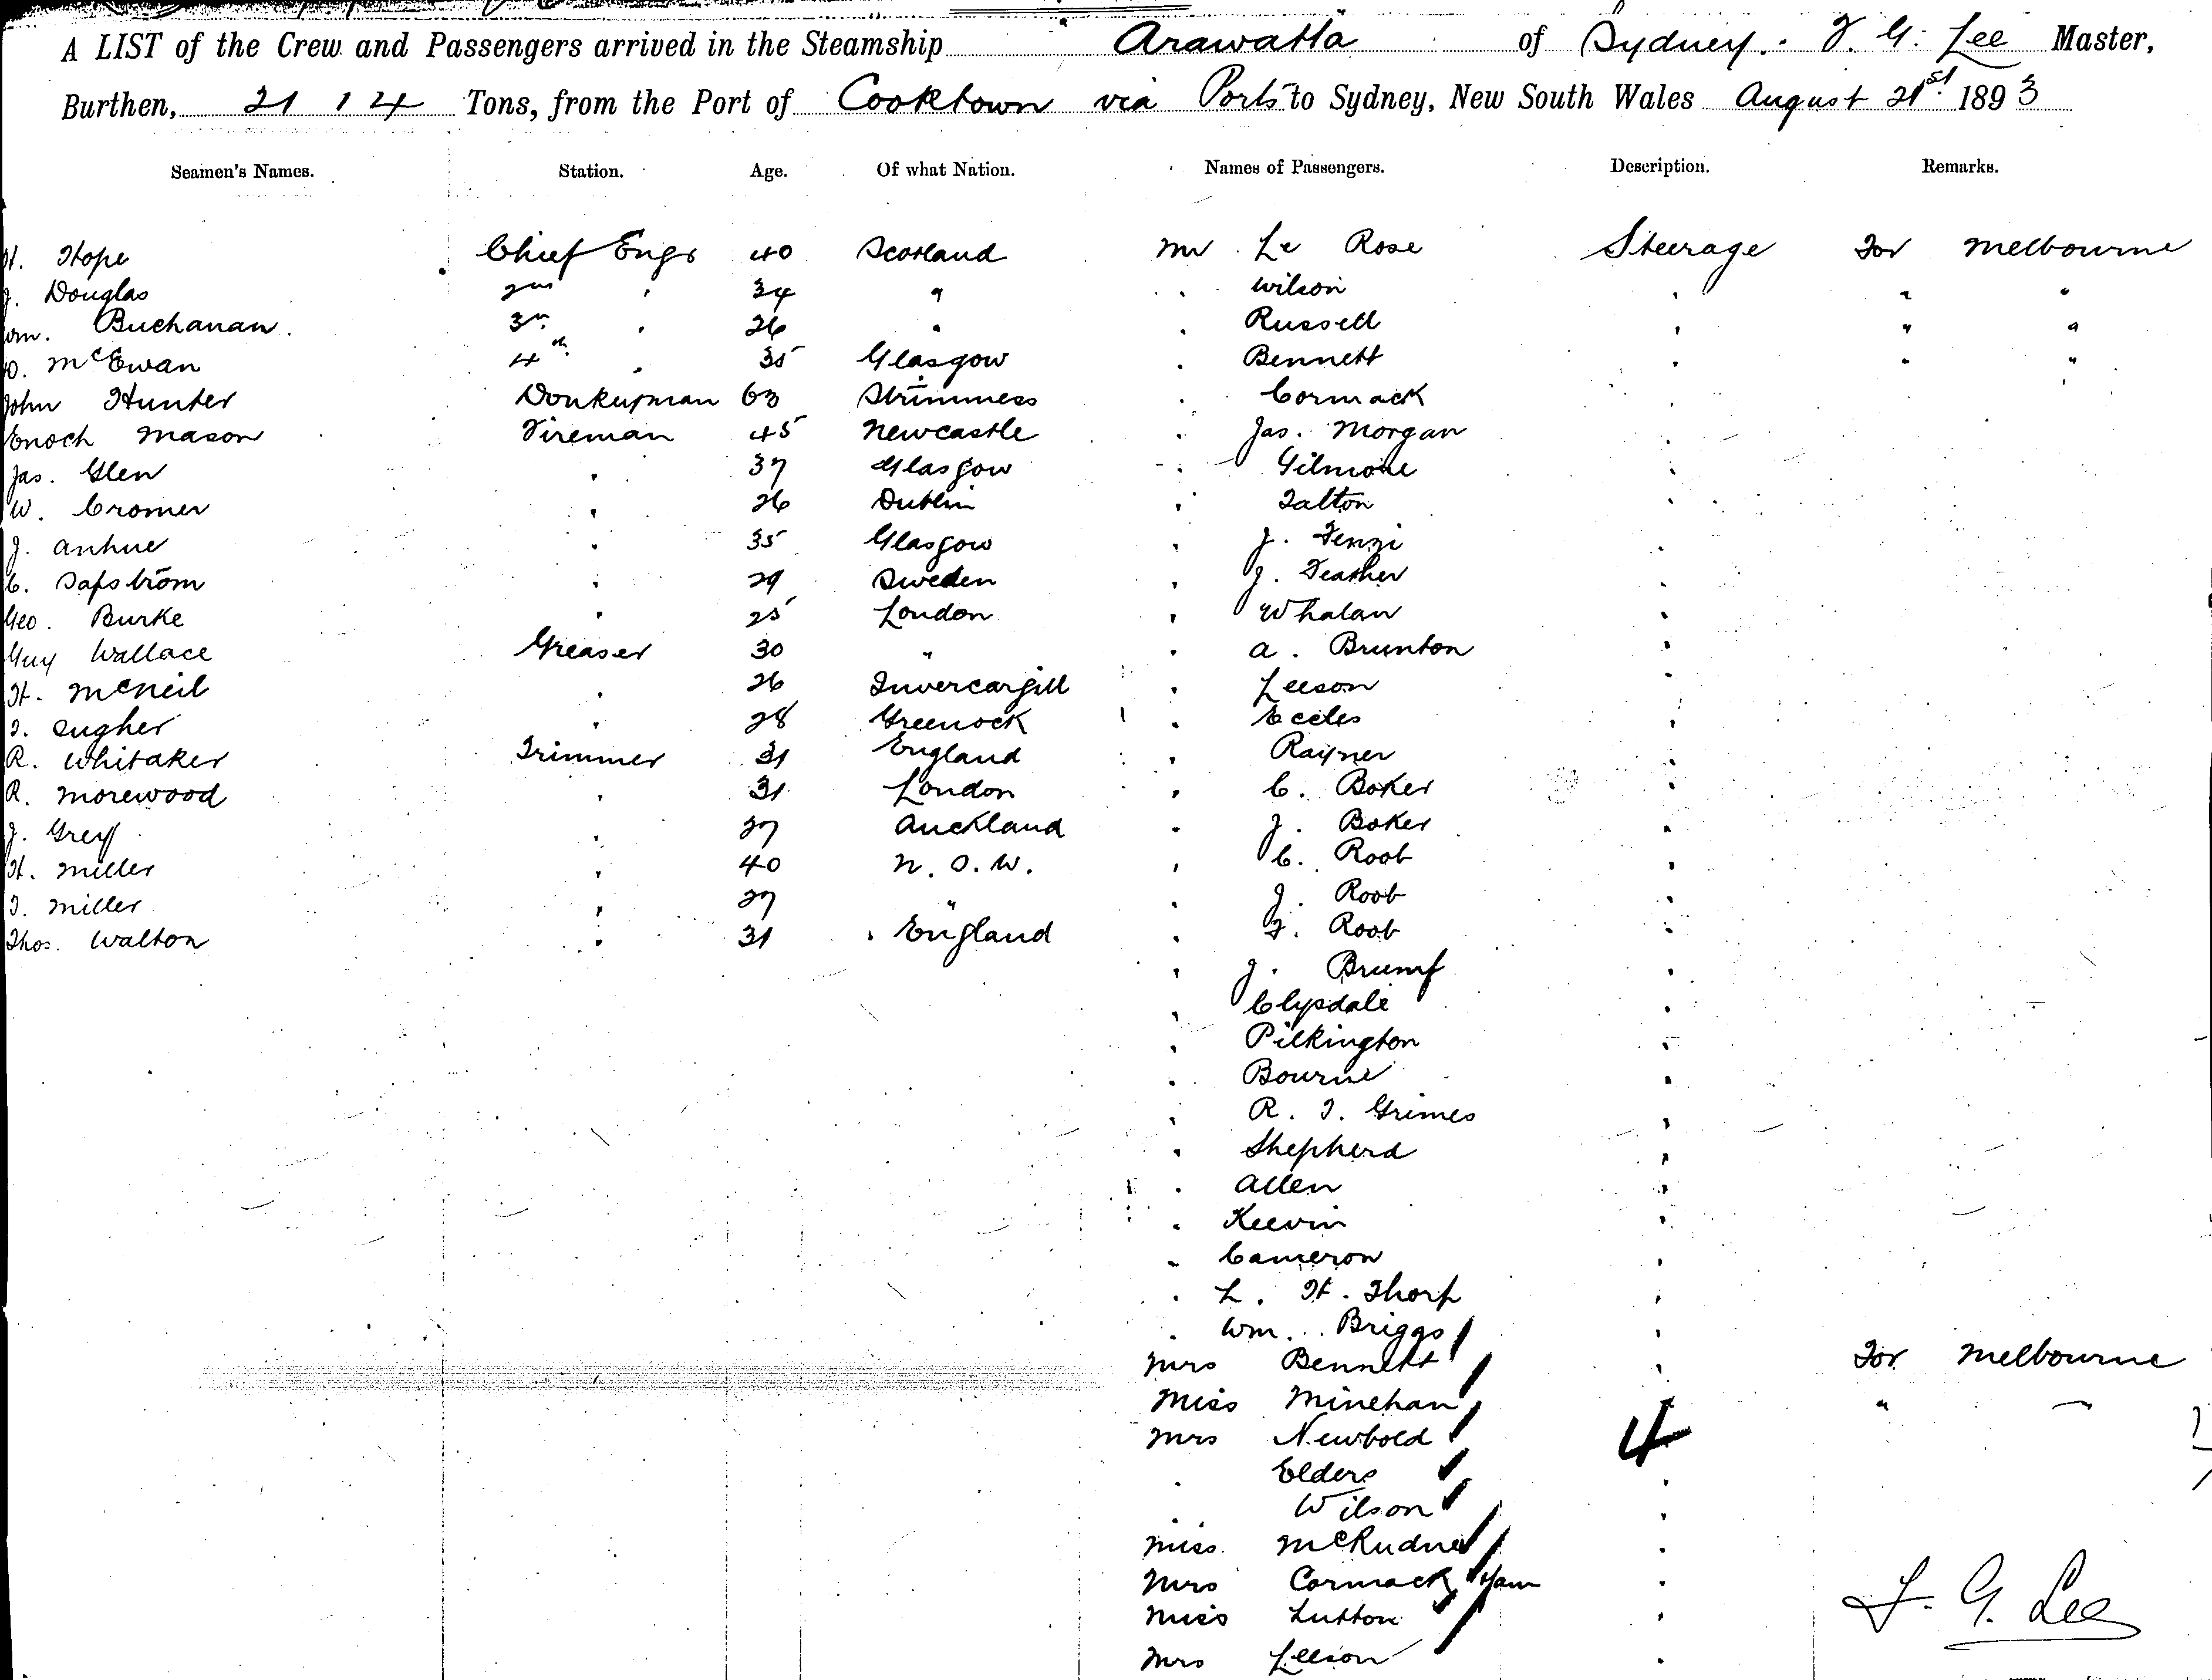 A LIST of the Crew and Passengers arrived in the Steamship Arawatta of Sydney. F. G. Lee Master,
Burthen, 2114 Tons, from the Port of Cooktown via Ports to Sydney, New South Wales August 21st 1893
Seamen's Names. Station. Age. Of what Nation. Names of Passengers. Description. Remarks.
H. Hope Chief Engr 40 Scotland Mr Le Rose Steerage For Melbourne
J. Douglas 2nd " 34 " " Wilson " " "
Wm. Buchanan 3rd " 26 " " Russell " " "
D. McEwan 4th " 35 Glasgow " Bennett " " "
John Hunter Donkeyman 63 " Cormack "
Enoch Mason Fireman 45 Newcastle " Jas. Morgan "
Jas. Glen " 37 Glasgow " Gilmore "
W. Cromer " 26 Dublin " Talton "
J. " 35 Glasgow " J. Fenzi "
C. Safström " 29 Sweden " J. Feather "
Geo. Burke " 25 London " Whalan "
Guy Wallace Greaser 30 " " A. Brunton "
H. McNeil " 26 Invercargill " Leeson "
T. Hugher " 28 Greenock " Eccles "
R. Whitaker Trimmer 31 England " Rayner "
R. Morewood " 31 London " C. Boker "
J. Grey " 27 Auckland " J. Boker "
H. Miller " 40 N. S. W. " C. Roob "
T. Miller " 27 " " J. Roob "
Thos. Walton " 31 England " F. Roob "
" J. Brumf "
" Clysdale "
" Pilkington "
" Bourne "
" R. T. Grimes "
" Shepherd "
" Allen "
" Keevin "
" Cameron "
" L. H. Thorp "
" Wm. Briggs "
Mrs Bennett " For Melbourne
Miss Minehan " "
Mrs Newbold 4
" Elders "
" Wilson "
Miss "
Mrs Cormack "
Miss Lutton " F. G. Lee
Mrs Leeson "